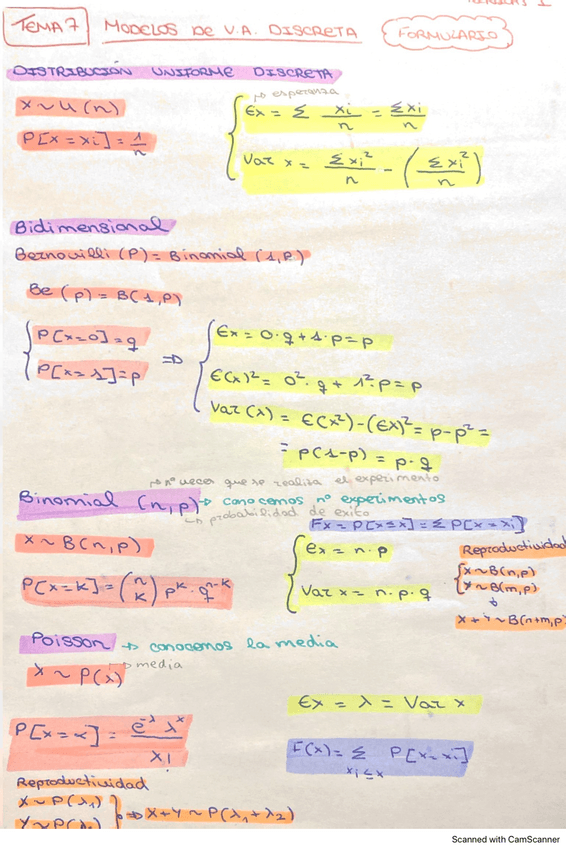 TEMA 7 MODELOS DE V.A. DISCRETA FORMULARIO
DISTRIBUCIÓN UNIFORME DISCRETA
→ esperanza
X ~ U(n)
Ex = Σ xi/n = Σxi/n
P[X = xi] = 1/n
Var x = Σxi²/n - (Σxi²/n)
Bidimensional
Bernouilli (P) = Binomial (1,P)
Be (p) = B(1,p)
P[x=0] = q
P[x=1] = p
⇒
Ex = 0·q + 1·p = p
E(x)² = 0²·q + 1²·p = p
Var(λ) = E(x²) - (Ex)² = p - p² =
= p(1-p) = p·q
→ nº veces que se realiza el experimento
Binomial (n,p) → conocemos nº experimentos
↳ probabilidad de exito
Fx = P[X≤x] = Σ P[x=xi]
X ~ B(n,p)
P[X=k] = (n k) p^k · q^n-k
Ex = n·p
Var x = n·p·q
Reproductividad
X ~ B(n,p)
Y ~ B(m,p)
↓
X + Y ~ B(n+m,p)
Poisson → conocemos la media
X ~ P(λ) → media
Ex = λ = Var x
P[X = x] = e^-λ λ^x / x!
F(x) = Σ xi≤x P[x=xi]
Reproductividad
X ~ P(λ1)
⇒ X+Y ~ P(λ1+λ2)
Y ~ P(λ2)
Scanned with CamScanner